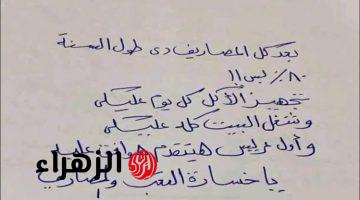 بعد كل المصاريف دى طول السنة
٨٠٪ بس !!
تجهيز الأكل كل يوم عليكى
وشغل البيت كله عليكى
وأول عريس هيتقدم هوافق عليه
يا خسارة التعب والمصاريف
الزهراء